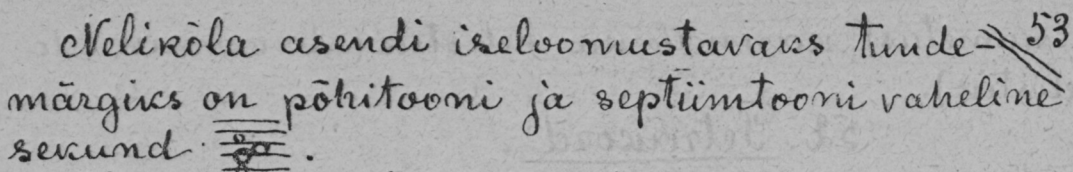 Nelikõla asendi iseloomustavaks tunde- 53
märgiks on põhitooni ja septiimtooni vaheline
sekund .